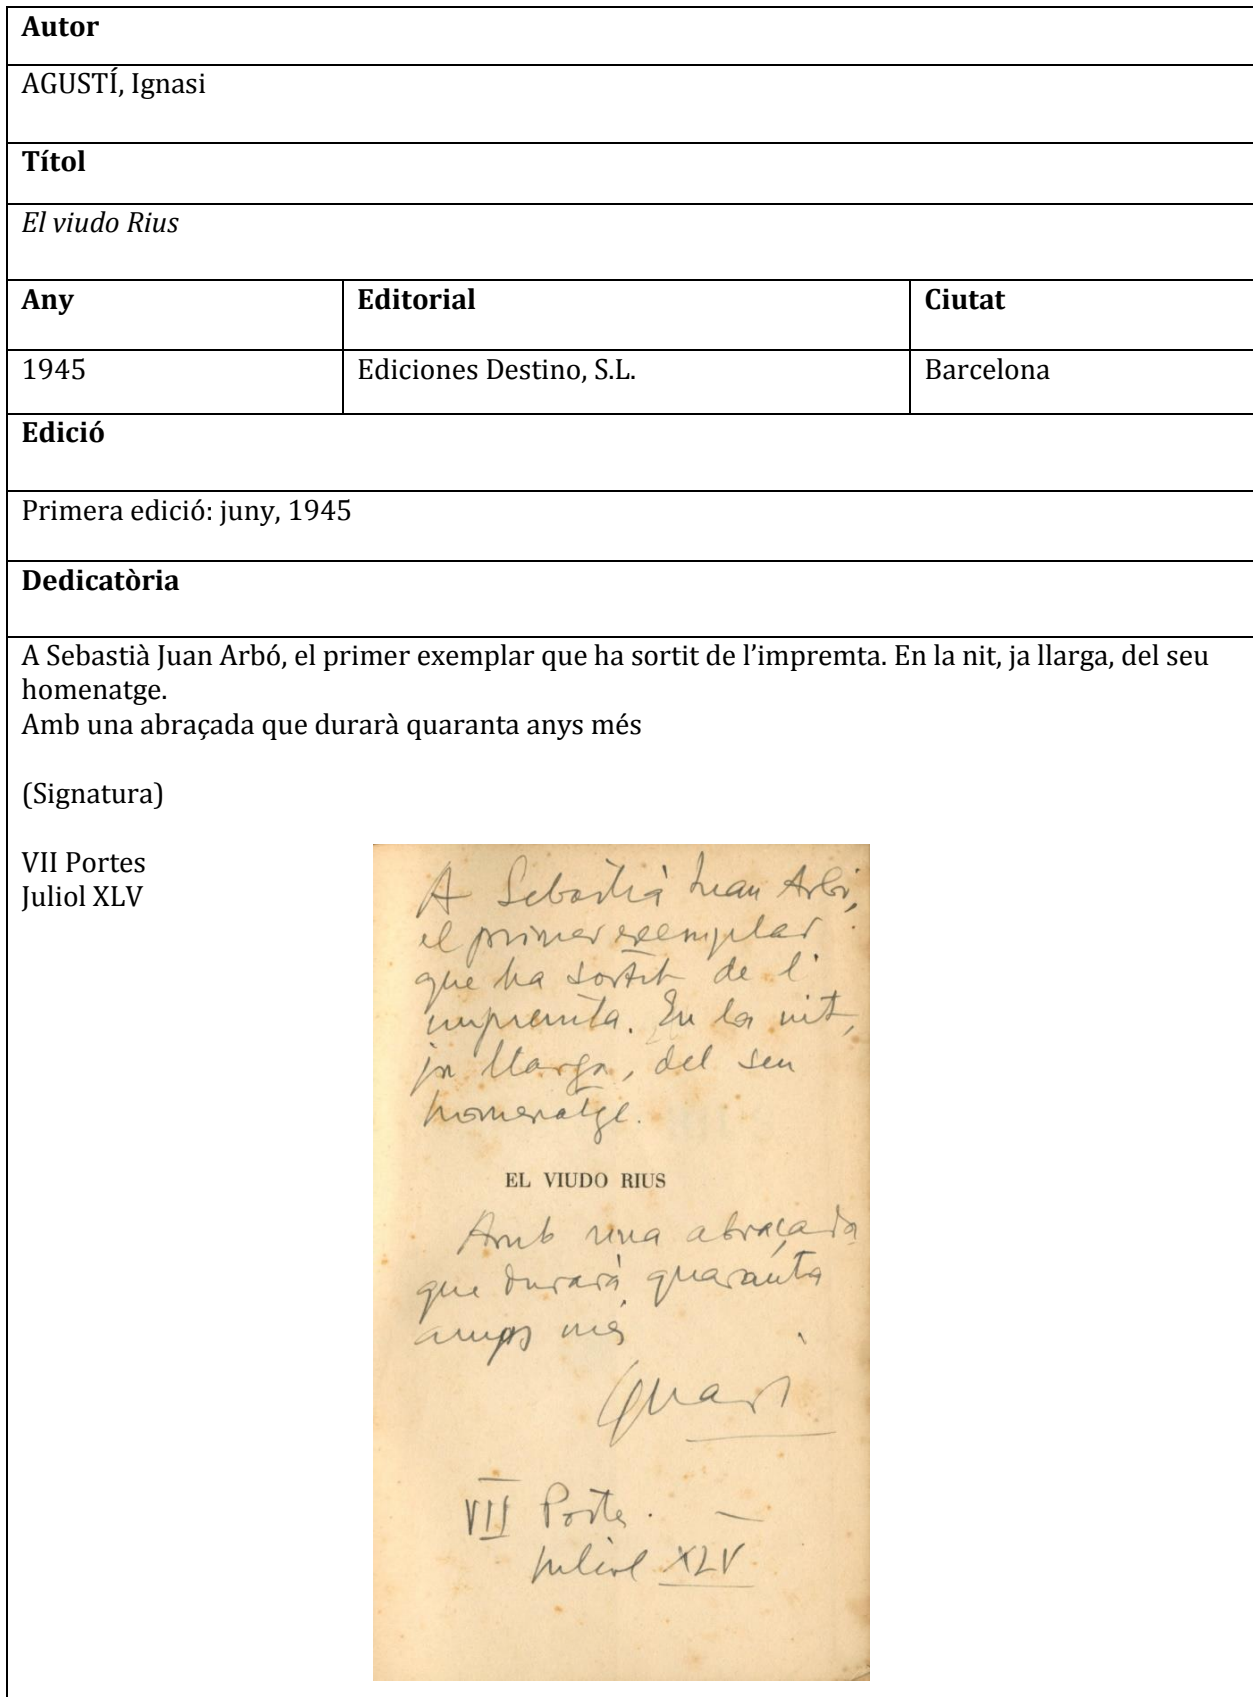 Autor
AGUSTÍ, Ignasi
Títol
El viudo Rius
Any Editorial Ciutat
1945 Ediciones Destino, S.L. Barcelona
Edició
Primera edició: juny, 1945
Dedicatòria
A Sebastià Juan Arbó, el primer exemplar que ha sortit de l’impremta. En la nit, ja llarga, del seu
homenatge.
Amb una abraçada que durarà quaranta anys més
(Signatura)
VII Portes
Juliol XLV
A Sebastià Juan Arbó,
el primer exemplar
que ha sortit de l'
impremta. En la nit,
ja llarga, del seu
homenatge.
EL VIUDO RIUS
Amb una abraçada
que durarà quaranta
anys més
Ignasi
VII Portes.
Juliol XLV